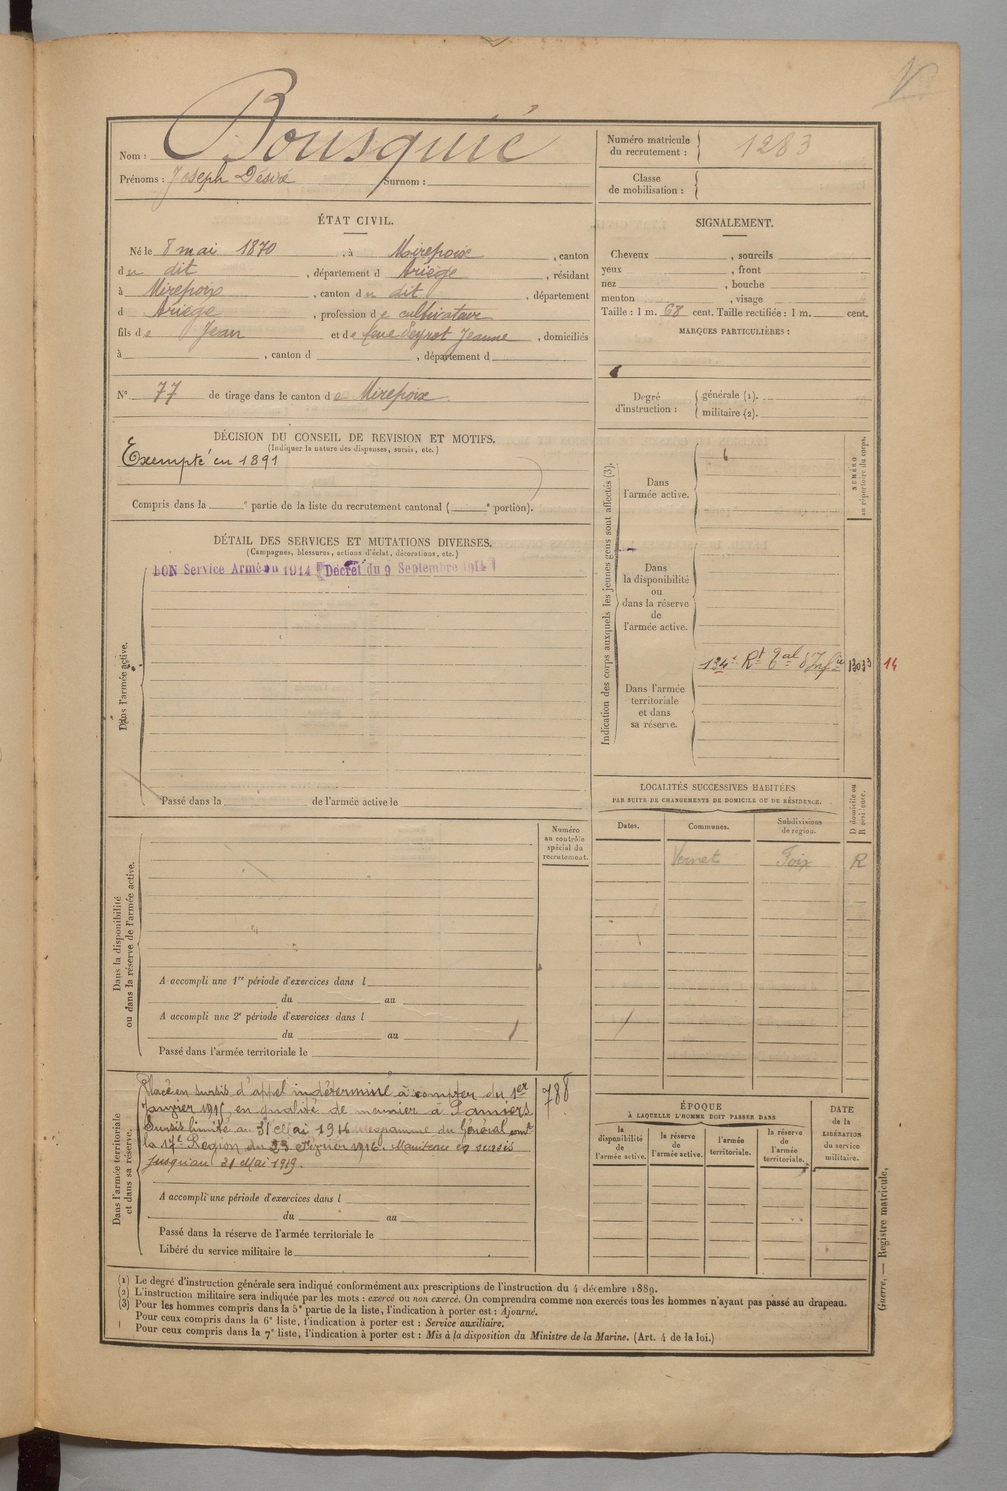 Nom : Bousquié
Prénoms : Joseph Désiré Surnom :
Numéro matricule
du recrutement : 1283
Classe
de mobilisation :
ÉTAT CIVIL.
Né le 8 mai 1870, à Mirepoix, canton
du dit, département d Ariège, résidant
à Mirepoix, canton du dit, département
d Ariège, profession de cultivateur
fils de Jean et de feue Peyrot Jeanne, domiciliés
à , canton d , département d
N° 77 de tirage dans le canton de Mirepoix
SIGNALEMENT.
Cheveux , sourcils
yeux , front
nez , bouche
menton , visage
Taille : 1 m. 68 cent. Taille rectifiée : 1 m. cent.
MARQUES PARTICULIÈRES :
Degré
d'instruction :
générale (1).
militaire (2).
DÉCISION DU CONSEIL DE REVISION ET MOTIFS.
(Indiquer la nature des dispenses, sursis, etc.)
Exempté en 1891
Compris dans la e partie de la liste du recrutement cantonal ( e portion).
DÉTAIL DES SERVICES ET MUTATIONS DIVERSES.
(Campagnes, blessures, actions d'éclat, décorations, etc.)
BON Service Armé en 1914 (Décret du 9 Septembre 1914)
Dans l'armée active.
Passé dans la de l'armée active le
Indication des corps auxquels les jeunes gens sont affectés (3).
NUMÉRO
au répertoire du corps.
Dans
l'armée active.
Dans
la disponibilité
ou
dans la réserve
de
l'armée active.
134e Rt Tal d'Infie 14
Dans l'armée
territoriale
et dans
sa réserve.
LOCALITÉS SUCCESSIVES HABITÉES
PAR SUITE DE CHANGEMENTS DE DOMICILE OU DE RÉSIDENCE.
D domicile ou
R résidence.
Dates. Communes. Subdivisions
de région.
Vernet Foix R
Numéro
au contrôle
spécial du
recrutement.
Dans la disponibilité
ou dans la réserve de l'armée active.
A accompli une 1re période d'exercices dans l
du au
A accompli une 2e période d'exercices dans l
du au
Passé dans l'armée territoriale le
Dans l'armée territoriale
et dans sa réserve.
788
Placé en sursis d'appel indéterminé à compter du 1er
janvier 1915, en qualité de meunier à Pamiers
Sursis limité au 31 Mai 1916 télégramme du Général comt
la 17e Région du 23 Février 1916. Maintenu en sursis
jusqu'au 31 Mai 1919.
A accompli une période d'exercices dans l
du au
Passé dans la réserve de l'armée territoriale le
Libéré du service militaire le
ÉPOQUE
À LAQUELLE L'HOMME DOIT PASSER DANS
la
disponibilité
de
l'armée active.
la réserve
de
l'armée active.
l'armée
territoriale.
la réserve
de
l'armée
territoriale.
DATE
de la
LIBÉRATION
du service
militaire.
(1) Le degré d'instruction générale sera indiqué conformément aux prescriptions de l'instruction du 4 décembre 1889.
(2) L'instruction militaire sera indiquée par les mots : exercé ou non exercé. On comprendra comme non exercés tous les hommes n'ayant pas passé au drapeau.
(3) Pour les hommes compris dans la 5e partie de la liste, l'indication à porter est : Ajourné.
Pour ceux compris dans la 6e liste, l'indication à porter est : Service auxiliaire.
Pour ceux compris dans la 7e liste, l'indication à porter est : Mis à la disposition du Ministre de la Marine. (Art. 4 de la loi.)
Guerre. — Registre matricule.